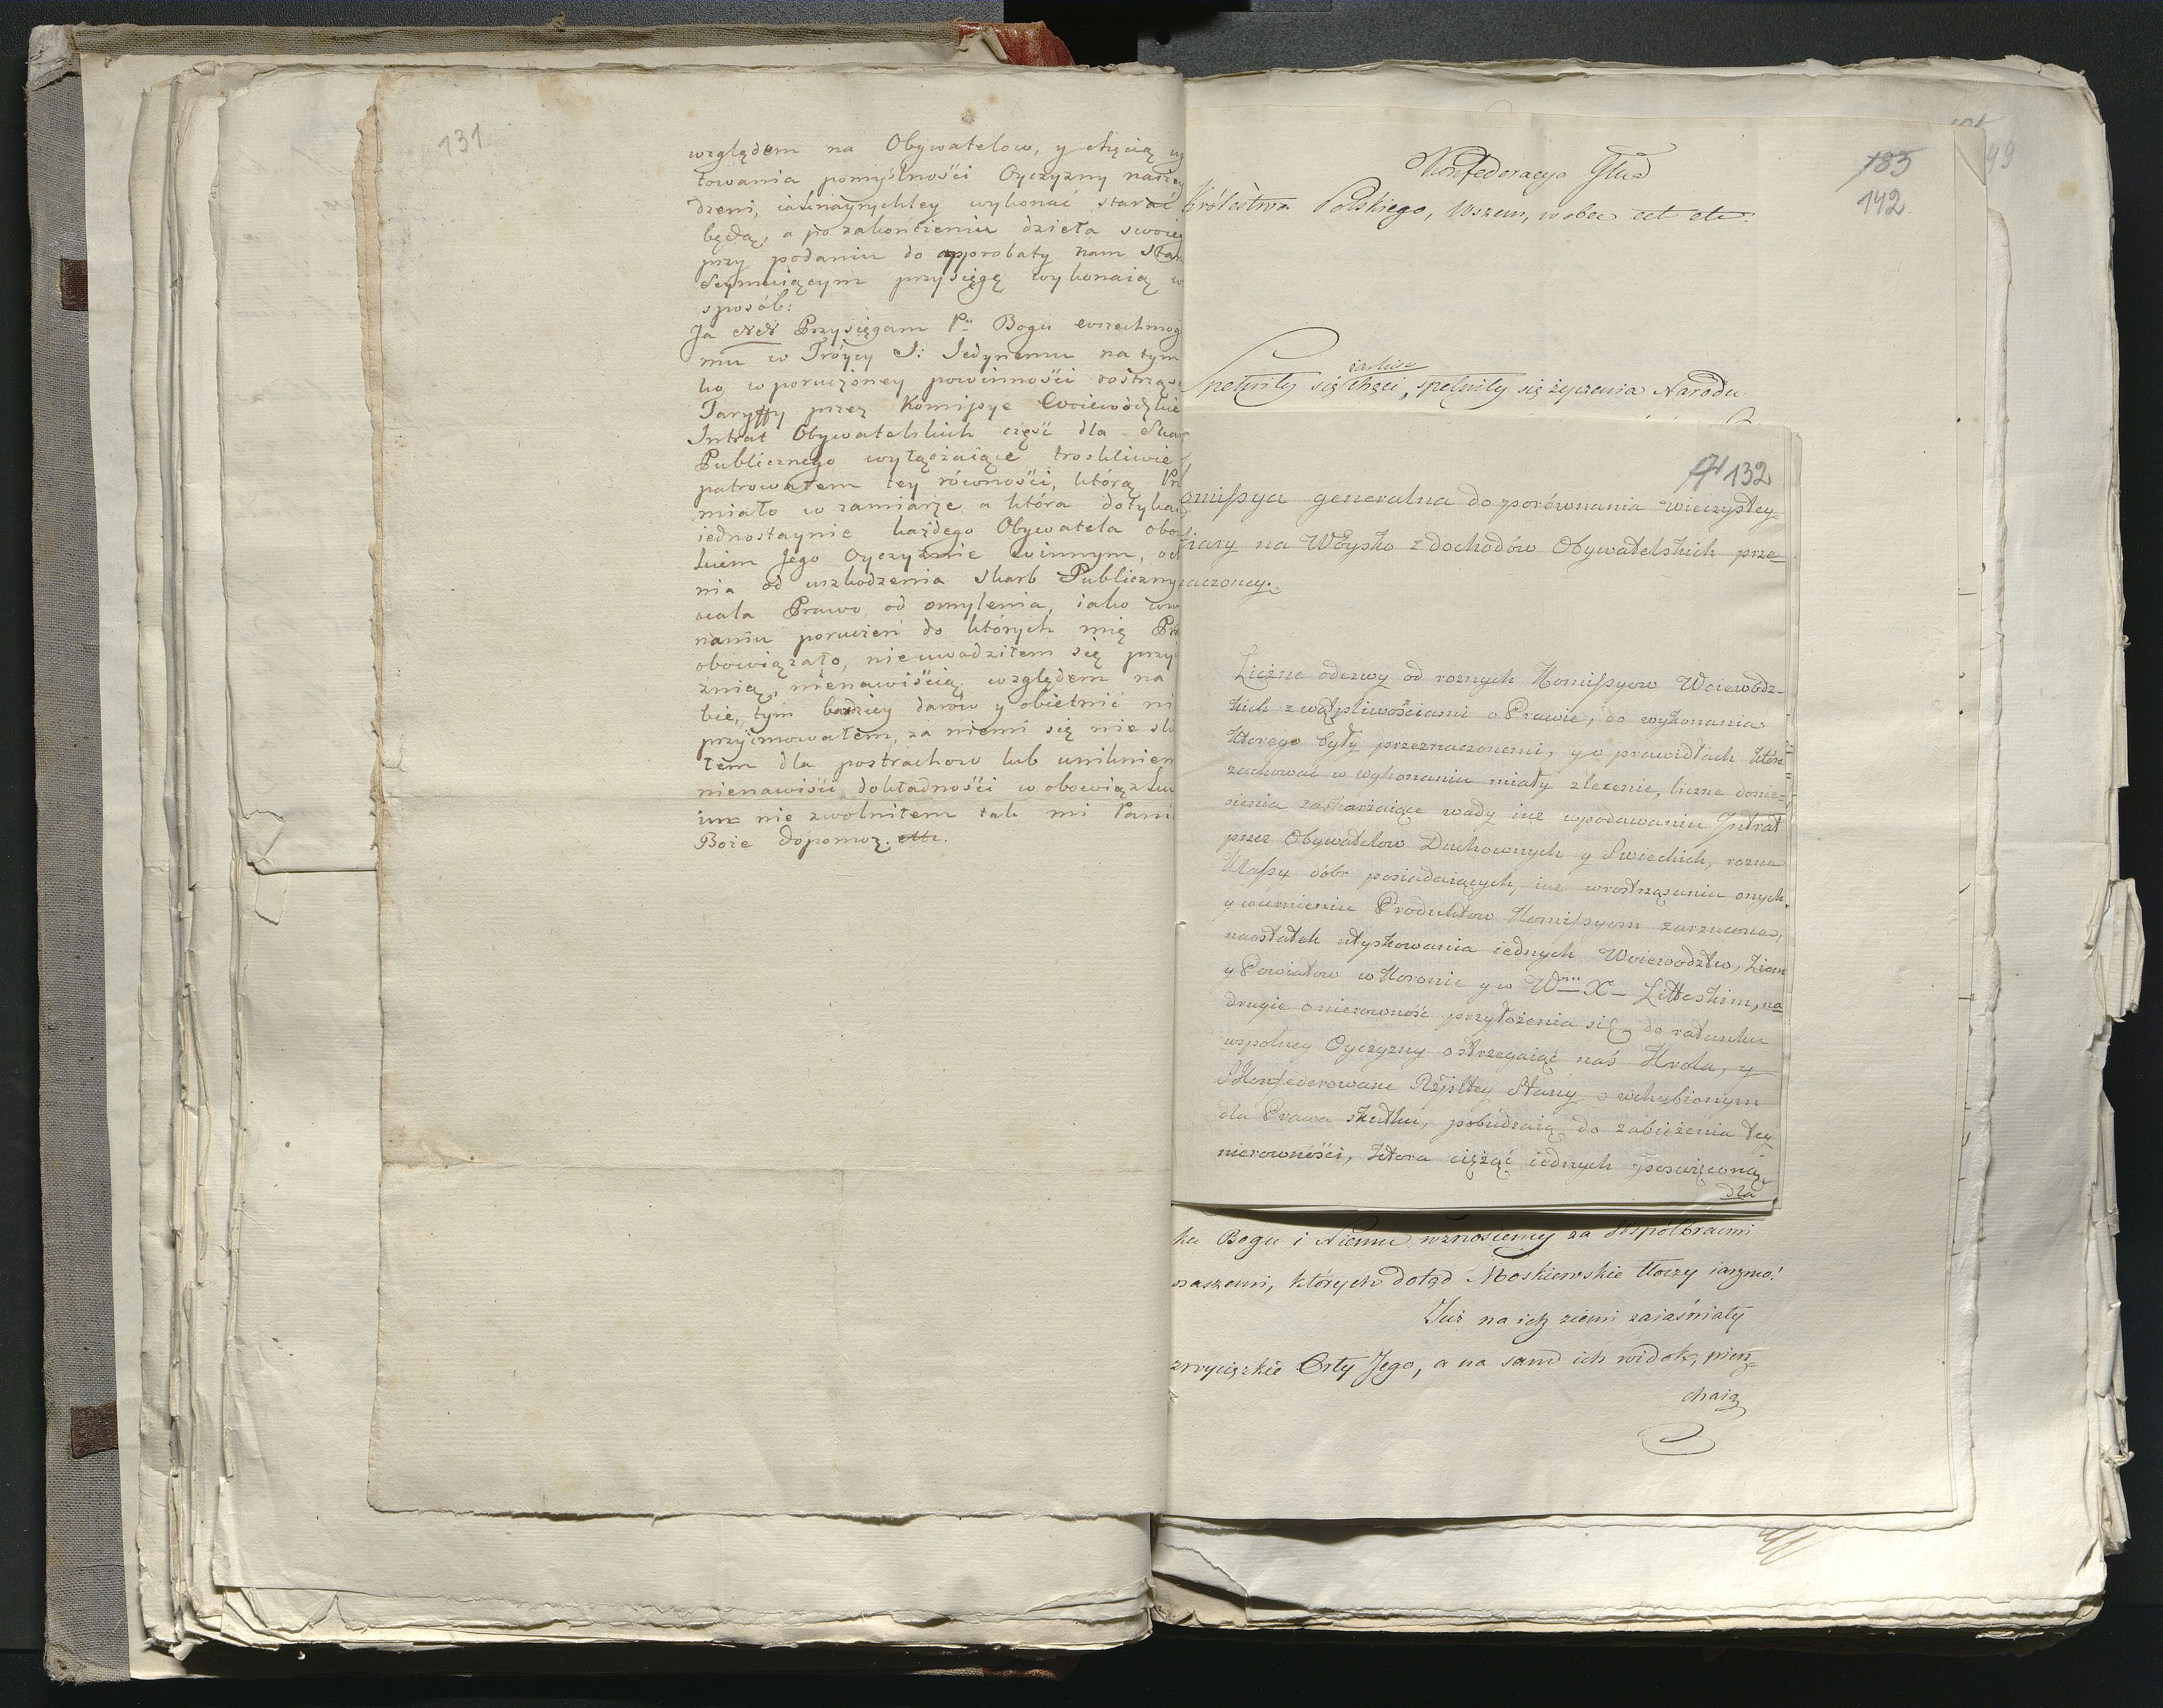 131
względem na Obywatelow, y chęcią ug
towania pomyślności Oyczyzny naszey
dzeni, iaknayrychley wykonać starać
będą, a po zakończeniu dzieła swoieg
przy podaniu do approbaty nam Stan
Seymuiącym przysięgę wykonaią w
sposób:
Ja NN Przysięgam Pu Bogu wszechmog
mu w Tróycy S: Jedynemu na tym
ko w poruczoney powinności rostrząs
Taryffy przez Kommissye Woiewódzkie
Intrat Obywatelskich część dla Skar
Publicznego wyłączaiące troskliwie
patrowałem tey równości, którą Pr
miało w zamiarze a która dotykać
iednostaynie każdego Obywatela obo
kiem Jego Oyczyznie winnym, och
nia od uszkodzenia Skarb Publiczny
cała Prawo od omylenia, iako w
naniu poruczeń do których mię Pr
obowiązało, nieuwodziłem się przy
źnią, nienawiścią, względem na
bie, tym bardziey darów y obietnić ni
przyimowałem, za niemi się nie sk
łem dla postrachow lub uniknien
nienawiści dokładności w obowiązku
im nie zwolniłem tak mi Panie
Boże dopomoz.
183
142.
49
Konfederacya Głna
Królestwa Polskiego, Wszem, wobec ect etc
żarliwe
Spełniły się chęci, spełniły się życzenia Narodu
132
omissya generalna do zporównania wieczystey
fiary na Woysko z dochodów Obywatelskich prze=
naczoney.
Liczne odezwy od roznych Komissyow Woiewodz=
kich z wątpliwościami o Prawie, do wykonania
ktorego były przeznaczonemi, y o prawidłach które
zachować w wykonaniu miały zlecenie, liczne donie=
sienia zaskarżaiące wady iuż w podawaniu Intrat
przez Obywatelow Duchownych y Swieckich, rozne
Klassy dóbr posiadaiących, iuż w rostrząsaniu onych,
y ocenieniu Produktow Komissyom zarzucone,
naostatek utyskowania iednych Woiewodztw, Ziem
y Powiatow w Koronie y w Wm X Litteskim, na
drugie o nierowność przyłożenia się do ratunku
wspolney Oyczyzny ostrzegaiąc nas Krola, y
Skonfederowane Rzpltey Stany o uchybionym
dla Prawa skutku, pobudzaią do zabieżenia tey
nierowności, ktora ciążąć iednych poswięconą
dla
ku Bogu i Niemu wznosiemy za Współbraćmi
naszemi, których dotąd Moskiewskie tłoczy iarzmo!
Już na ich ziemi zaiaśniały
zwycięzkie Orły Jego, a na sam ich widok, pierz=
chaią